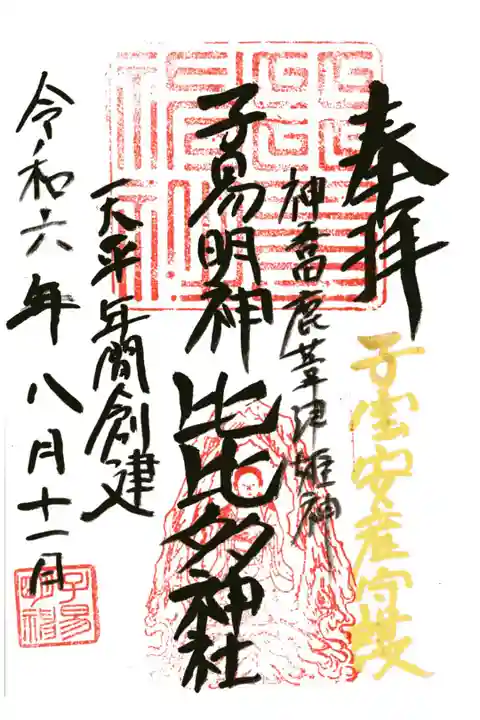 奉拝
子宝安産守護
神吾田鹿葦津姫神
子易明神 比比多神社
天平年間創建
令和六年八月十一月
子易明神